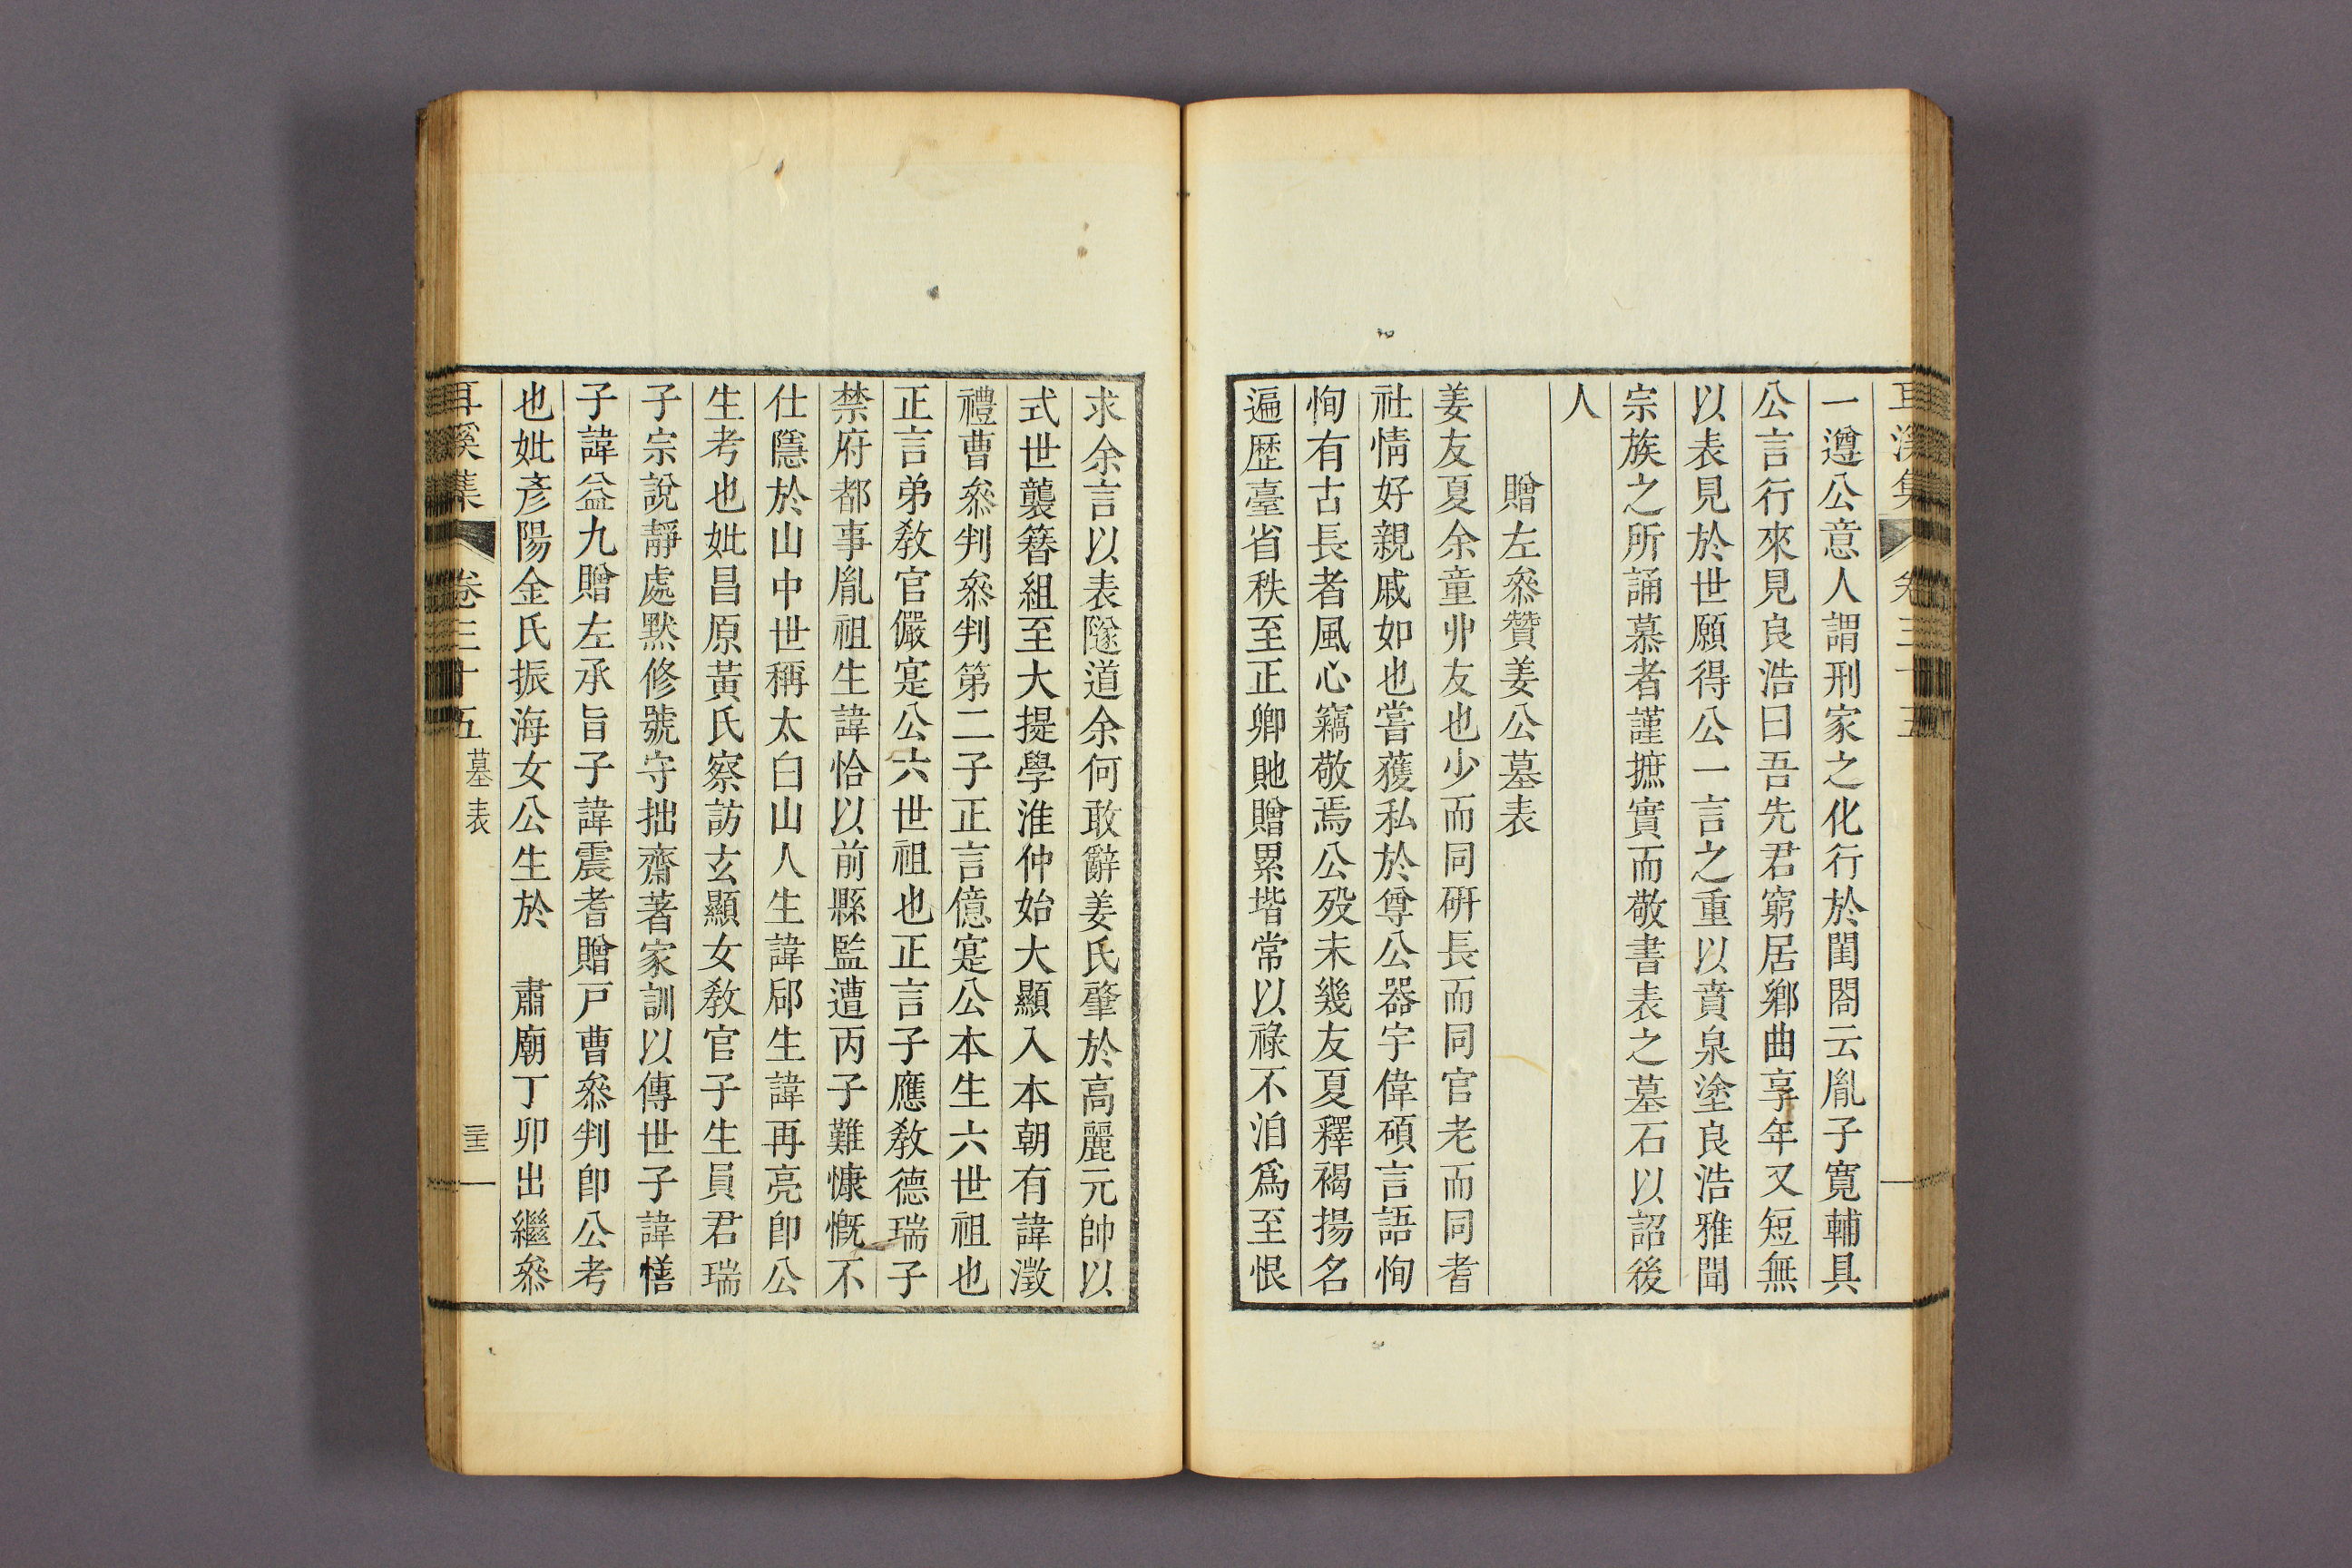 耳溪集 卷三十五
一遵公意人謂刑家之化行於閨閤云胤子寬輔具
公言行來見良浩曰吾先君窮居鄕曲享年又短無
以表見於世願得公一言之重以賁泉塗良浩雅聞
宗族之所誦慕者謹摭實而敬書表之墓石以詔後
人
贈左叅贊姜公墓表
姜友夏余童丱友也少而同硏長而同官老而同耆
社情好親戚如也嘗獲私於尊公器宇偉碩言語恂
恂有古長者風心竊敬焉公歿未幾友夏釋褐揚名
遍歷臺省秩至正卿貤贈累堦常以祿不洎爲至恨
求余言以表隧道余何敢辭姜氏肇於高麗元帥以
式世襲簪組至大提學淮仲始大顯入本朝有諱澂
禮曹叅判叅判第二子正言億寔公本生六世祖也
正言弟敎官儼寔公六世祖也正言子應敎德瑞子
禁府都事胤祖生諱恰以前縣監遭丙子難慷慨不
仕隱於山中世稱太白山人生諱郈生諱再亮卽公
生考也妣昌原黃氏察訪玄顯女敎官子生員君瑞
子宗說靜處默修號守拙齋著家訓以傳世子諱㦊
子諱益九贈左承旨子諱震耆贈戶曹叅判卽公考
也妣彥陽金氏振海女公生於 肅廟丁卯出繼叅
耳溪集 卷三十五 墓表